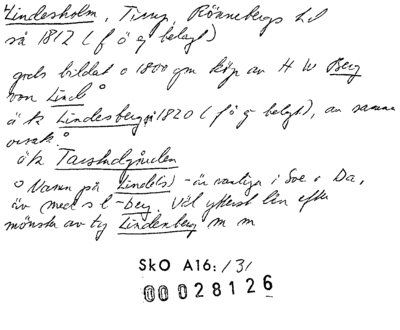 Lindesholm, Tirup, Rönnebergs hd
så 1812 (f ö ej belagt)
gods bildat o 1800 gm köp av H W Berg
von Lind °
ä k Lindesberg på 1820 (f ö ej belagt), av samma
orsak. °
äk Tarstadgården
° Namn på Linde(s) - är vanliga i Sve o Da,
äv med s l -berg. Väl ytterst lån efter
mönster av ty Lindenberg m m
SkO A16: /31
00028126